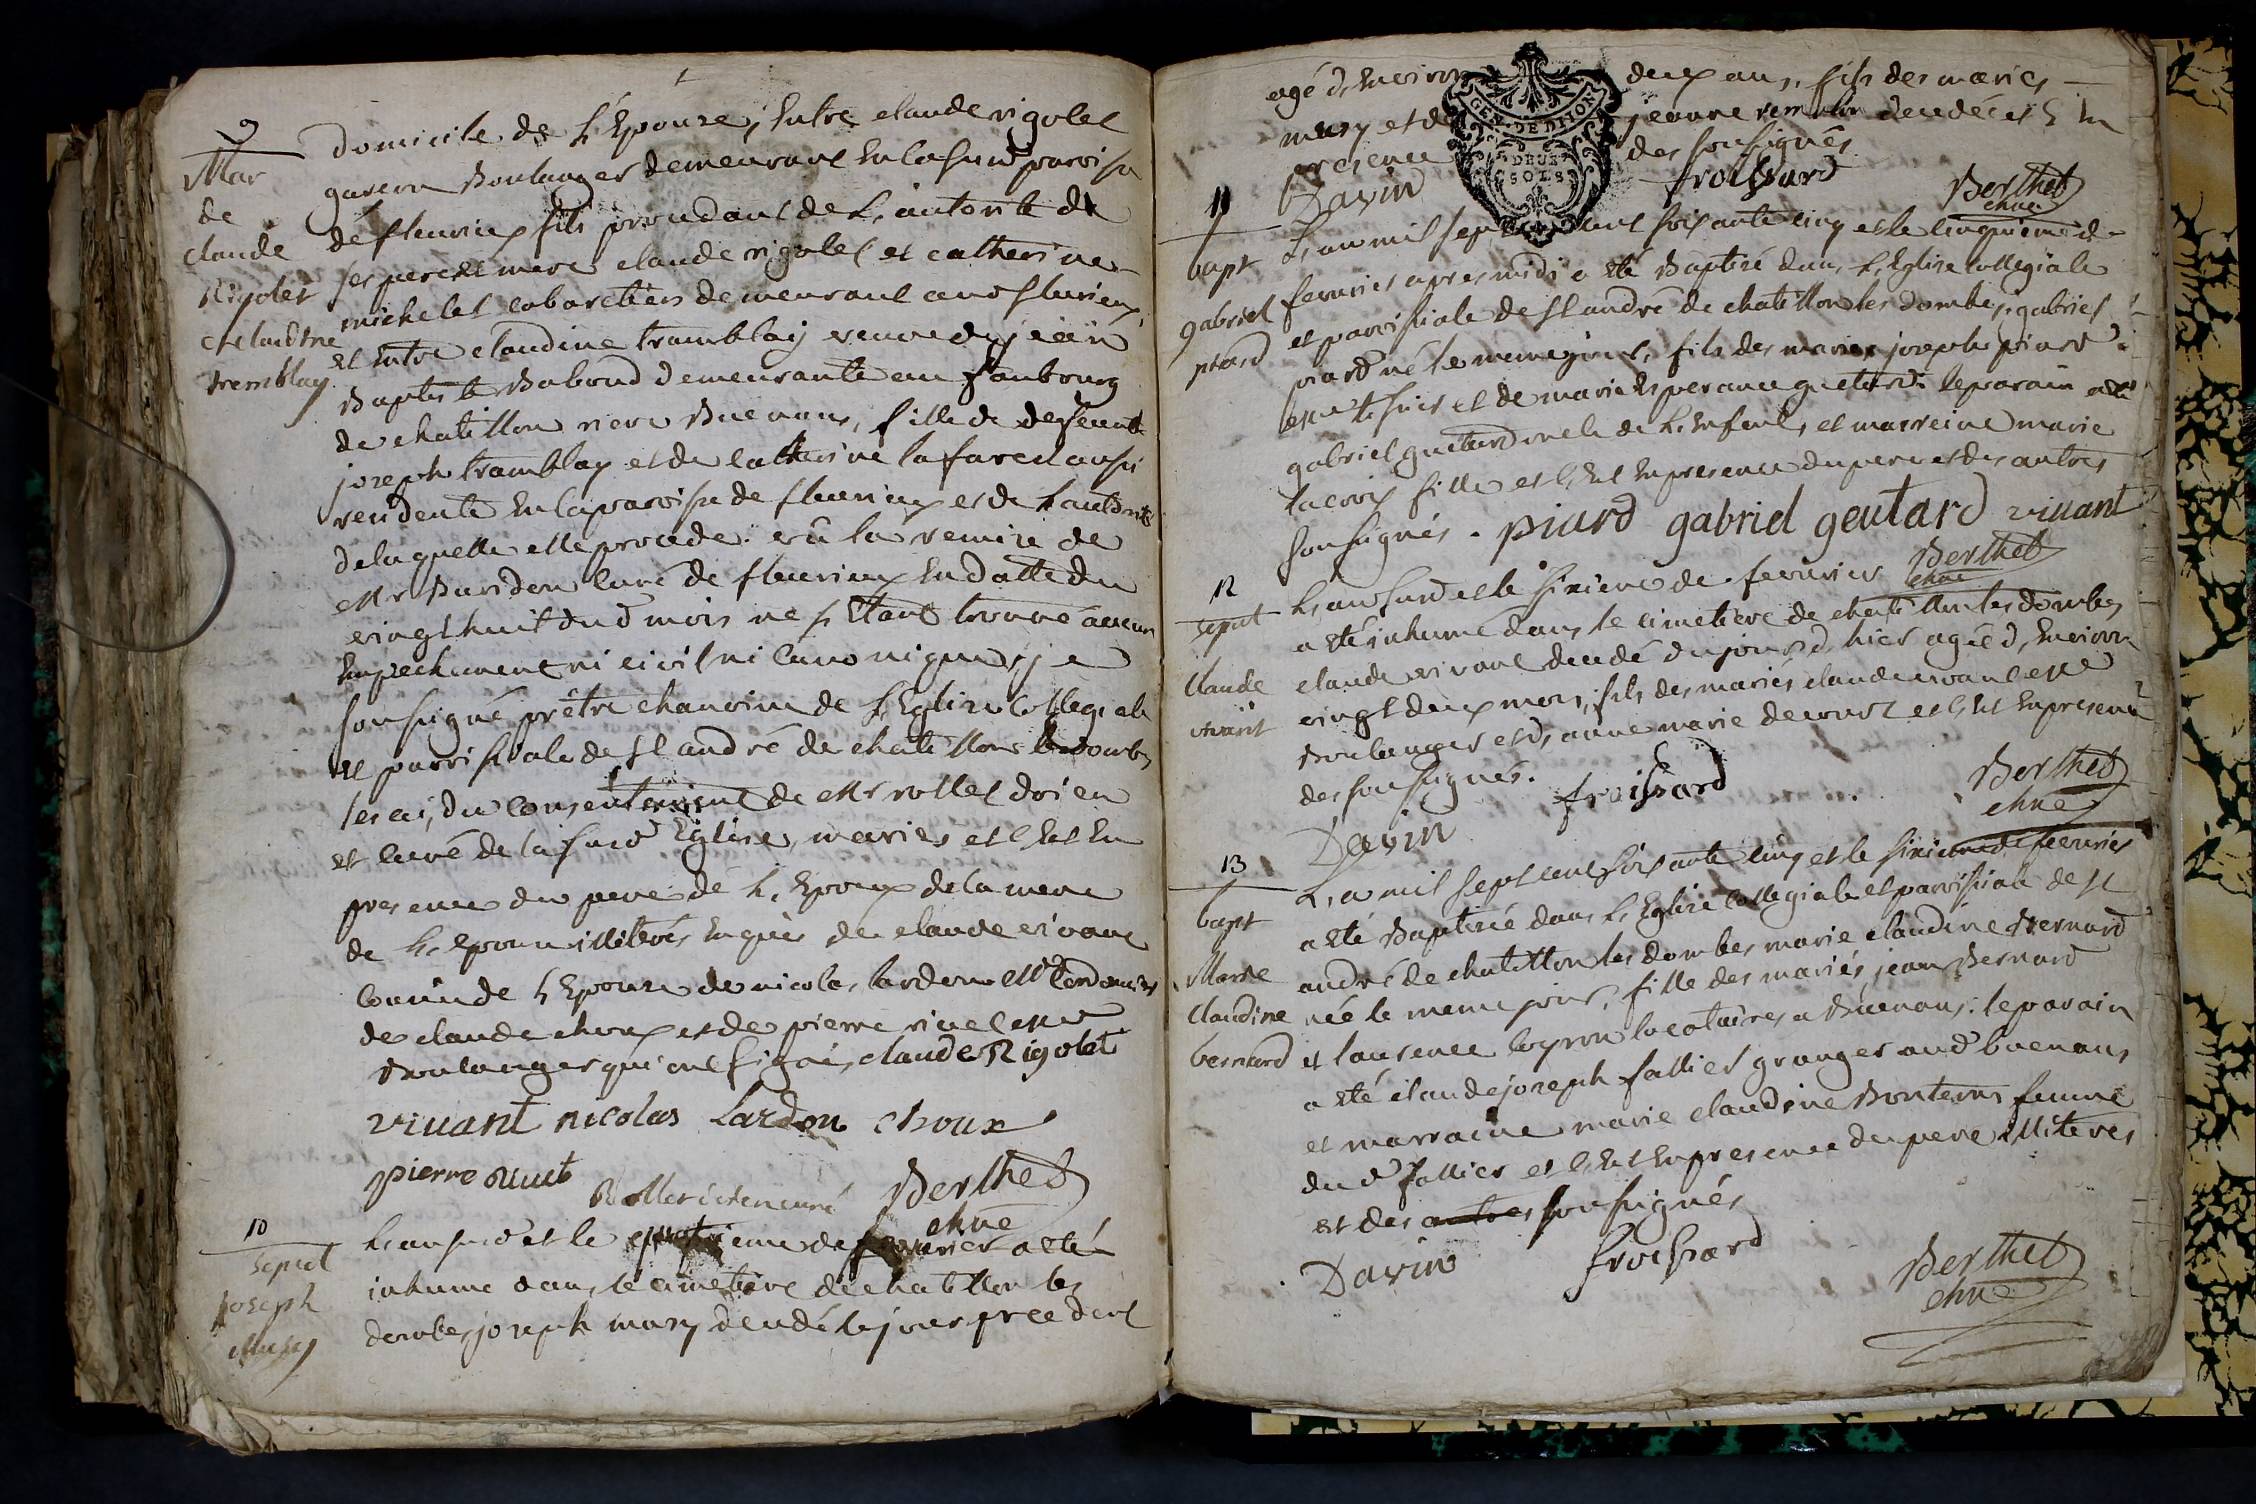 9
Mar
de
claude
Rigolet
et claudine
tremblay
domicile de L'Epouze, Entre claude rigolet
garcon Boulanger demeurant En la susd paroisse
de fleurieux fils procudant de L'autorité de
ses pere et mere claude rigolet et catherine
michelet cabaretiers demeurant aud fleurieux,
et Entre claudine tramblay veuve de jean
Baptiste Baboud demeurante au faubourg
de chatillon riere Buenans, fille de deffeunt
joseph tramblay et de catherine lafarest aussi
residente En la paroisse de fleurieux et de L'autorité
de laquelle elle procede. vû la remise de
Mr Buridon curé de fleurieux En datte du
vingt huit dud mois ne s'Etant trouvé aucun
Empechement ni civil ni canonique, je
soussigné prêtre chanoine de L'Eglise Collegiale
et parroissiale de St andré de chatillon les dombes
les ai, du consentement de Mr rollet doien
et curé de la susd Eglise, mariés et c'Est En
presence du pere de L'Epoux de la mere
de L'Epouse illiterés Enquis de claude vivant
cousin de L'Epouze de nicolas lardon Mr Cordonnier
de claude choux et de pierre rivet Me
Boulanger qui ont signé, claude Rigolet
vivant nicolas Lardon choux
pierre Rivet
Rollet doien curé Berthet
chne
10
sepul
joseph
Musy
L'an susd et le quatrieme de fevrier a eté
inhumé dans le cimetiere de chatillon les
dombes joseph musy decedé le jour precedent
agé d'Environ deux ans, fils des mariés
musy et de jeanne decedé et c'Est En
presence des soussignés
GEN. DE DIJON
DEUX
SOLS
Davin froissard Berthet
chne
11
bapt
gabriel
piard
L'an mil sept cent soixante cinq et le cinquieme de
fevrier apres midi a eté Baptisé dans L'Eglise Collegiale
et parroissiale de St andré de chatillon les dombes, gabriel
piard né le meme jour, fils des mariés joseph piard
Me et de marie Esperance guetard. le parain a eté
gabriel guetard oncle de L'Enfant, et marreine marie
lacroix fille et c'Est En presence du pere et des autres
soussignés. piard gabriel geutard vivant
Berthet
chne
12
sepul
Claude
vivant
L'an susd et le sixieme de fevrier
a eté inhumé dans le cimetiere de chatillon les dombes
claude vivant decedé du jour d'hier agée d'Environ
vingt deux mois, fils des mariés claude vivant Me
Boulanger et d'anne marie decourt et c'Est En presence
des soussignés. froissard Berthet
chne
Davin
13
bapt
Marie
Claudine
bernard
L'an mil sept cent soixante cinq et le sixieme de fevrier
a eté Baptisée dans L'Eglise Collegiale et parroissiale de St
andré de chatillon les dombes marie claudine Bernard
née le meme jour, fille des mariés jean Bernard
et laurence loyron locataires a Buenans. le parain
a eté claude joseph fallier granger aud buenans,
et marraine marie claudine Bontems femme
du d fallier et c'Est En presence du pere illiteré
et des autres soussignés
Davin froissard Berthet
chne